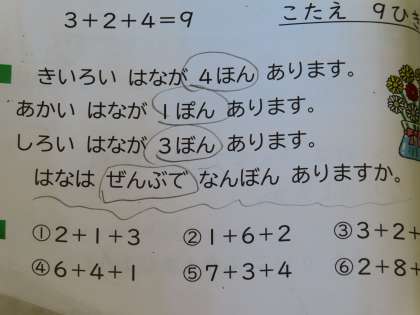 3+2+4=9
こたえ 9ひ
きいろい はなが 4ほん あります。
あかい はなが 1ぽん あります。
しろい はなが 3ぼん あります。
はなは ぜんぶで なんぼん ありますか。
①2+1+3 ②1+6+2 ③3+2+
④6+4+1 ⑤7+3+4 ⑥2+8+